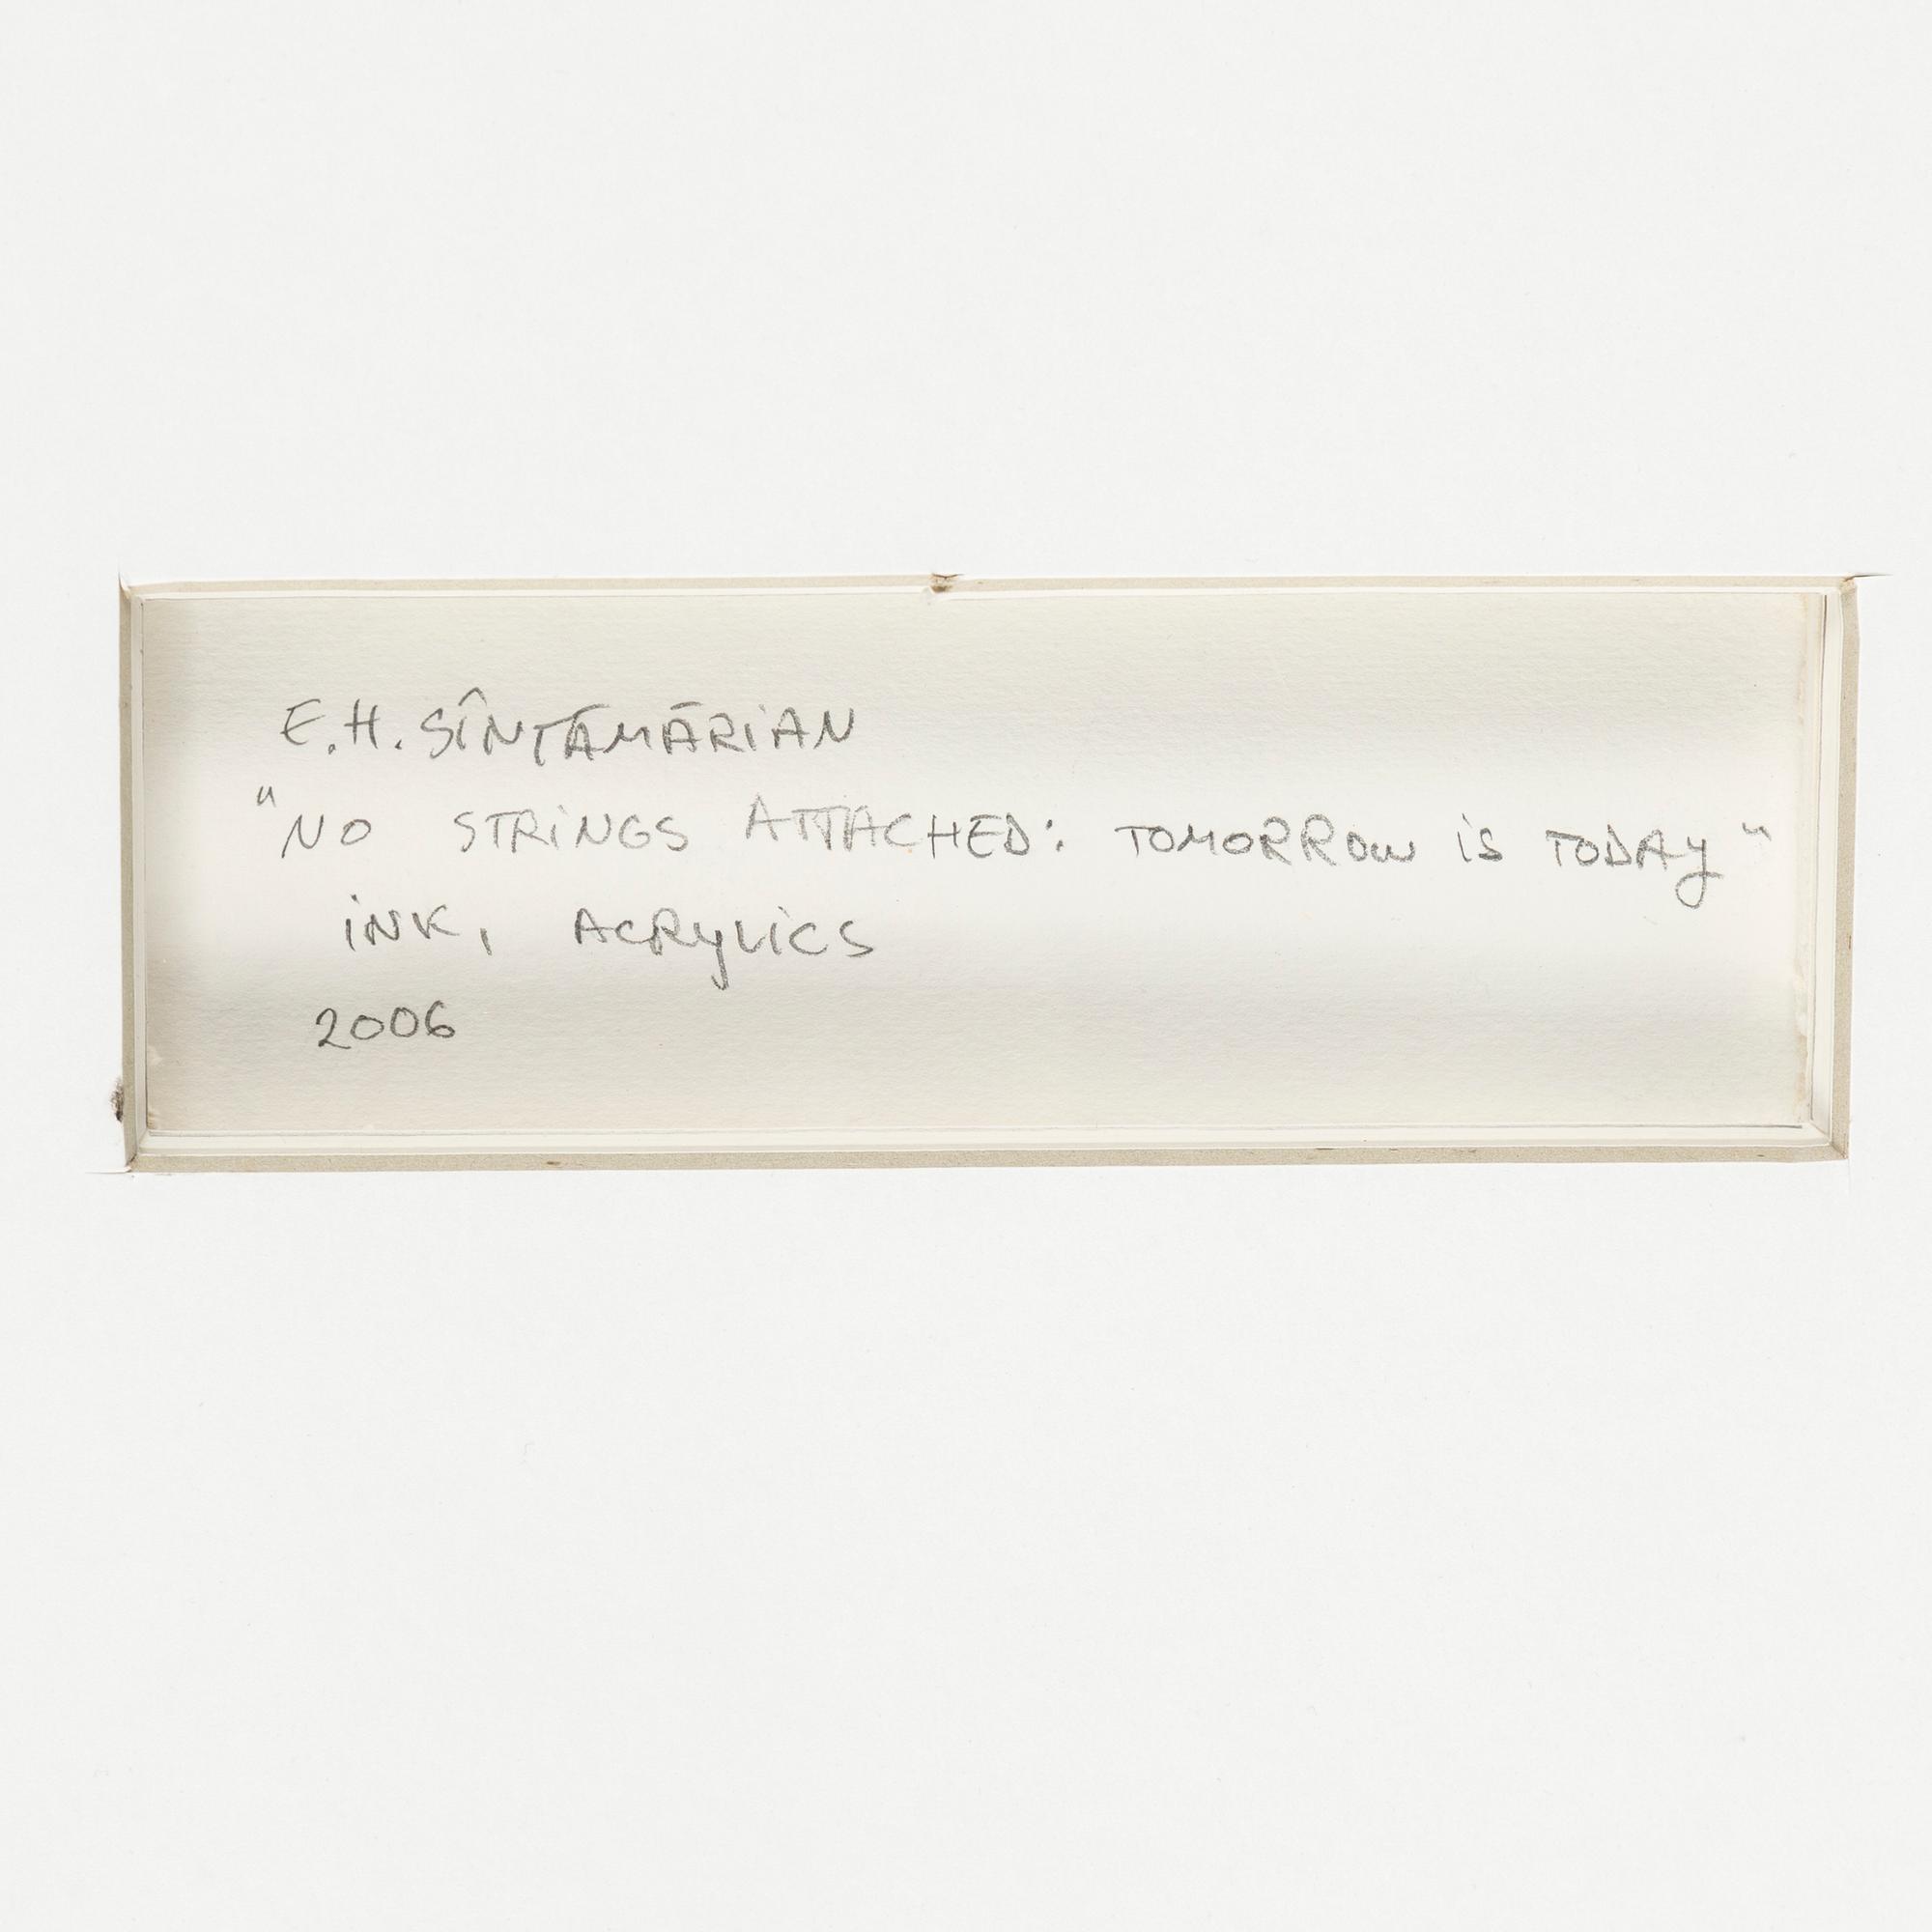 E.H. SÎNTĂMĂRIAN
"NO STRINGS ATTACHED: TOMORROW IS TODAY"
INK, ACRYLICS
2006